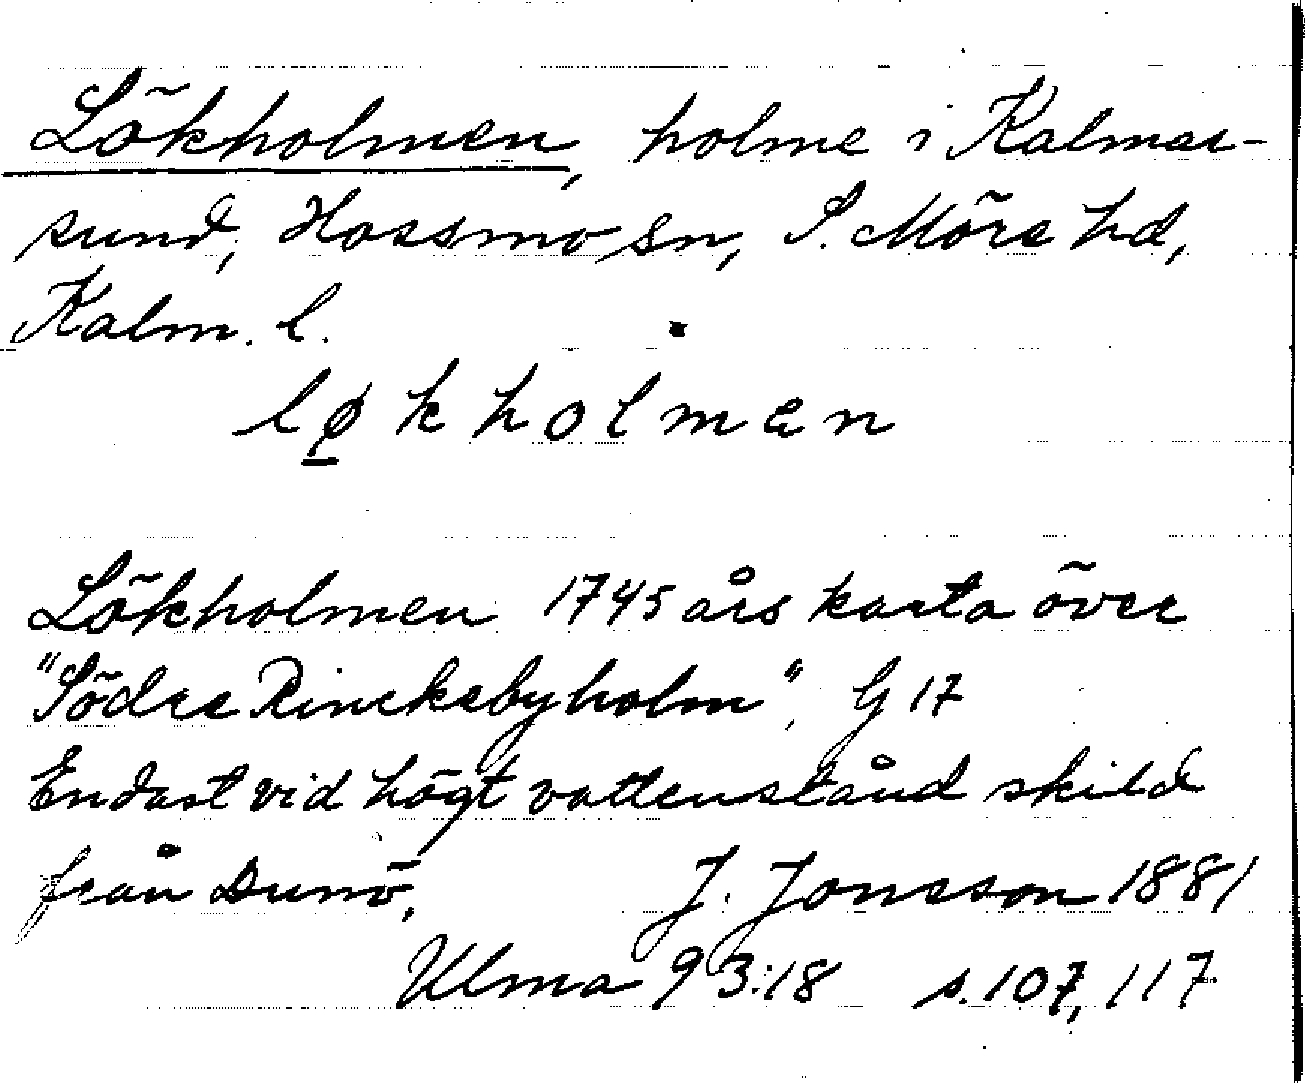 Lökholmen, holme i Kalmar-
sund, Hossmo sn, S. Möre hd,
Kalm. l.
lø̱kholmen
Lökholmen 1745 års karta över
"Södre Rinckebyholm", G 17
Endast vid högt vattenstånd skild
från Dunö.
J. Jonsson 1881
Ulma 93:18 s. 107, 117